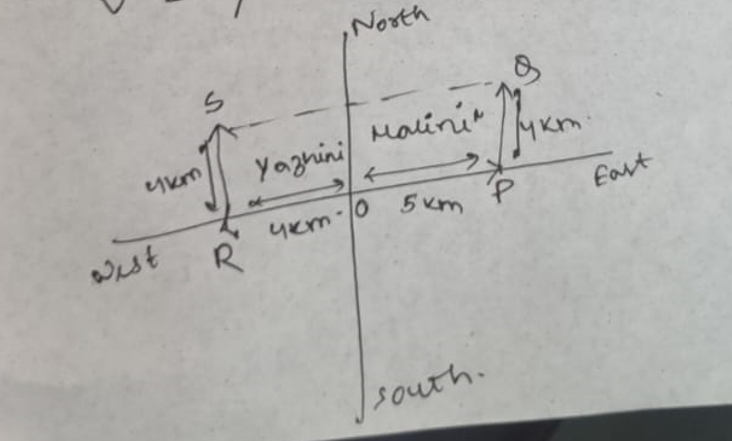 North
S
Q
Malini
4km
Yazhini
4km
East
O
5km
P
4km
R
West
South.